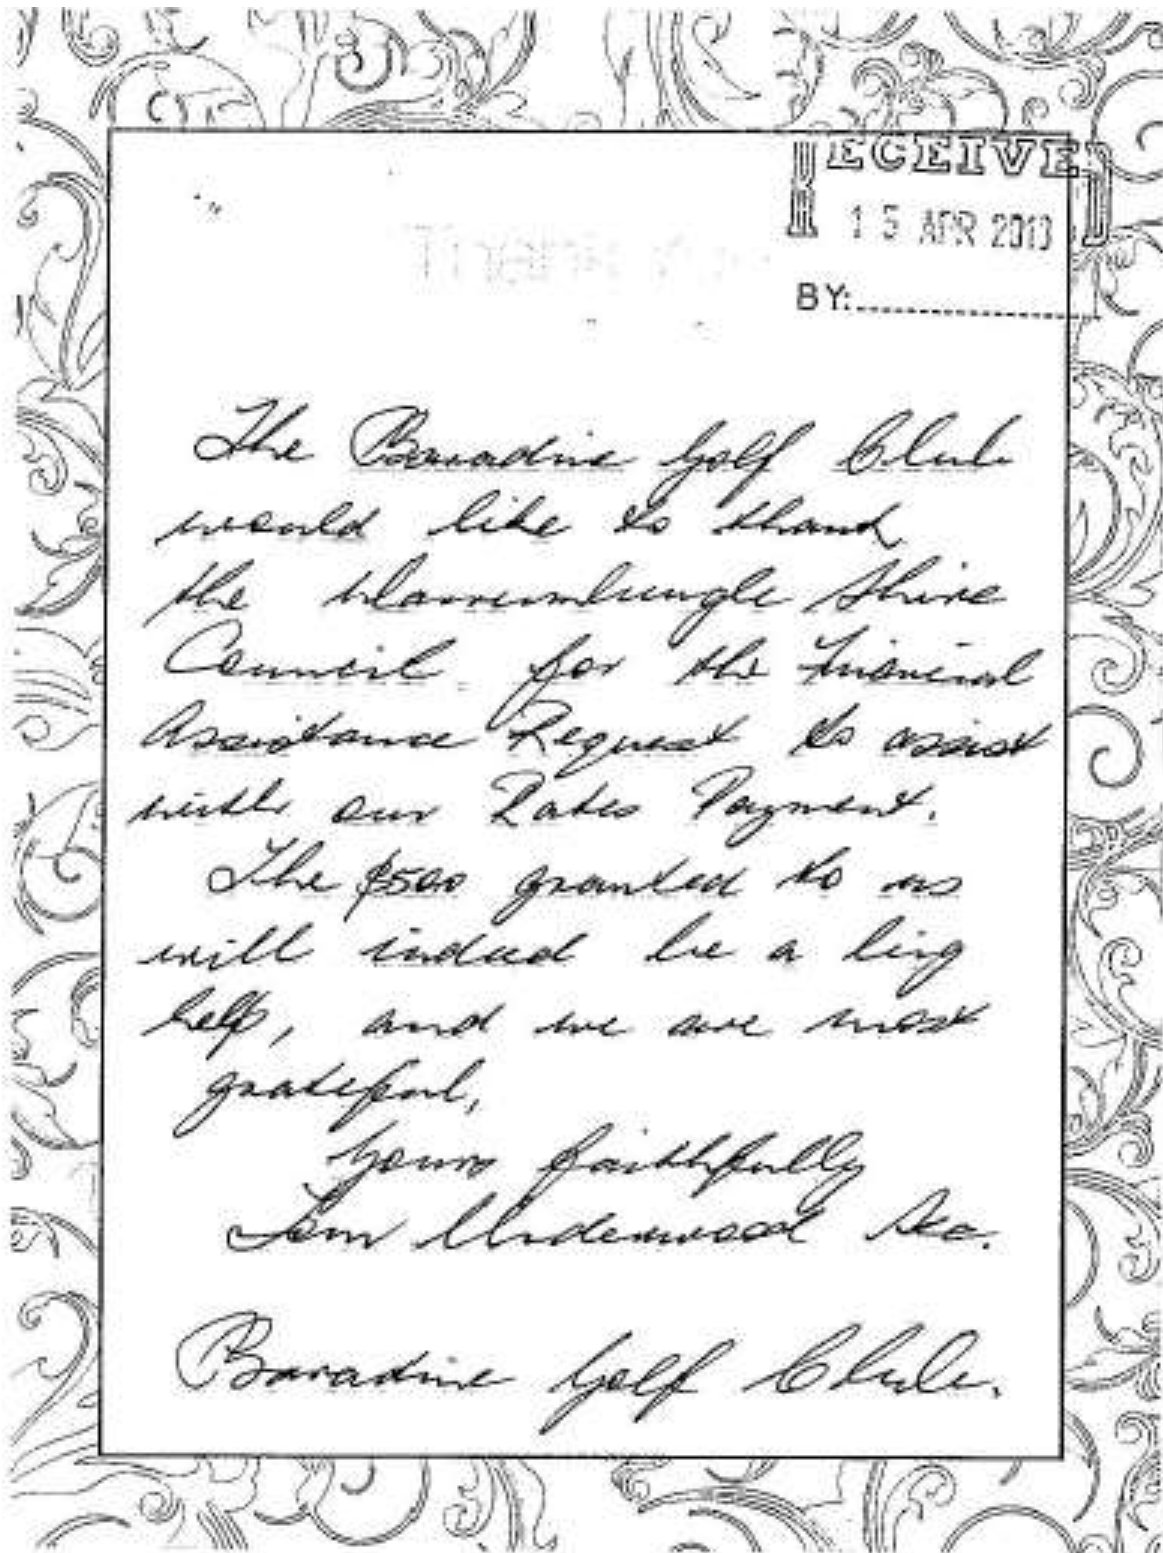 RECEIVED
15 APR 2013
BY:
The Baradine Golf Club
would like to thank
the Warrumbungle Shire
Council for the Financial
Assistance Request to assist
with our Rates Payment.
The $500 granted to us
will indeed be a big
help, and we are most
grateful,
Yours faithfully
Underwood Sec.
Baradine Golf Club.